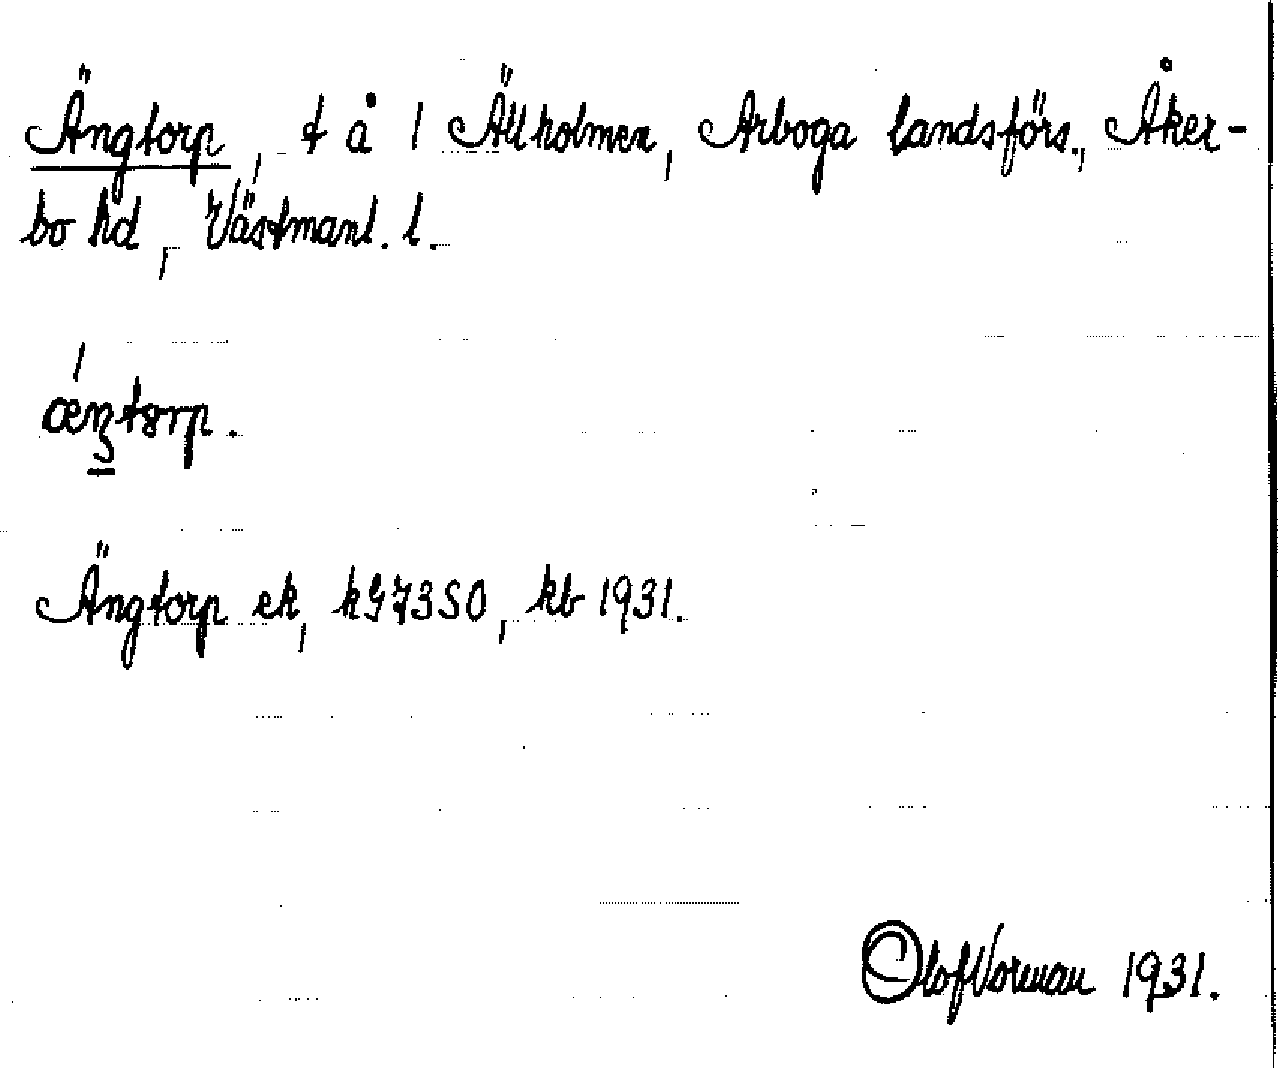 Ängtorp, t å 1 Ällholmen, Arboga landsförs., Åker-
bo hd, Västmanl. l.
Ängtorp ek, kG7350, kb 1931.
Olof Vorman 1931.